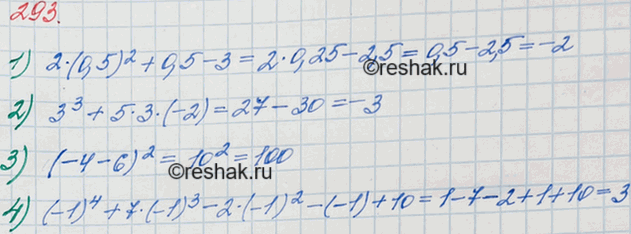 293.
1) 2·(0,5)² + 0,5 - 3 = 2·0,25 - 2,5 = 0,5 - 2,5 = -2
©reshak.ru
2) 3³ + 5·3·(-2) = 27 - 30 = -3
3) (-4-6)² = 10² = 100
©reshak.ru
4) (-1)⁴ + 7·(-1)³ - 2·(-1)² - (-1) + 10 = 1 - 7 - 2 + 1 + 10 = 3